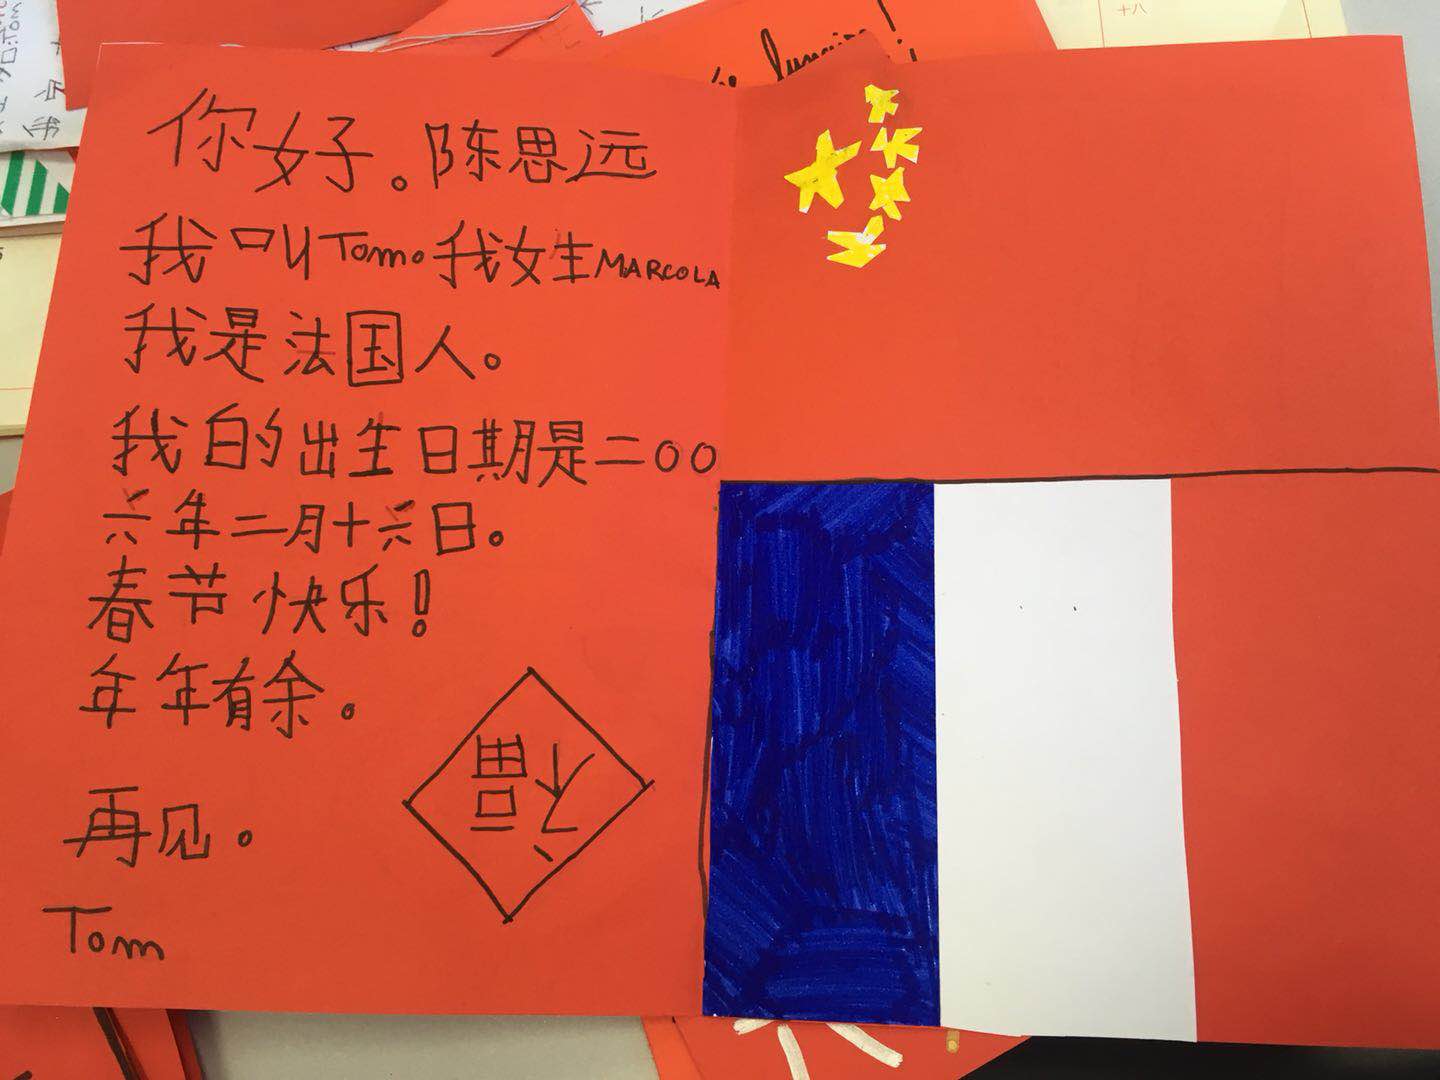 你好。陈思远
我叫Tom。我女生MARCOLA
我是法国人。
我的出生日期是二〇〇
六年二月十六日。
春节快乐！
年年有余。
福
再见。
Tom
十八